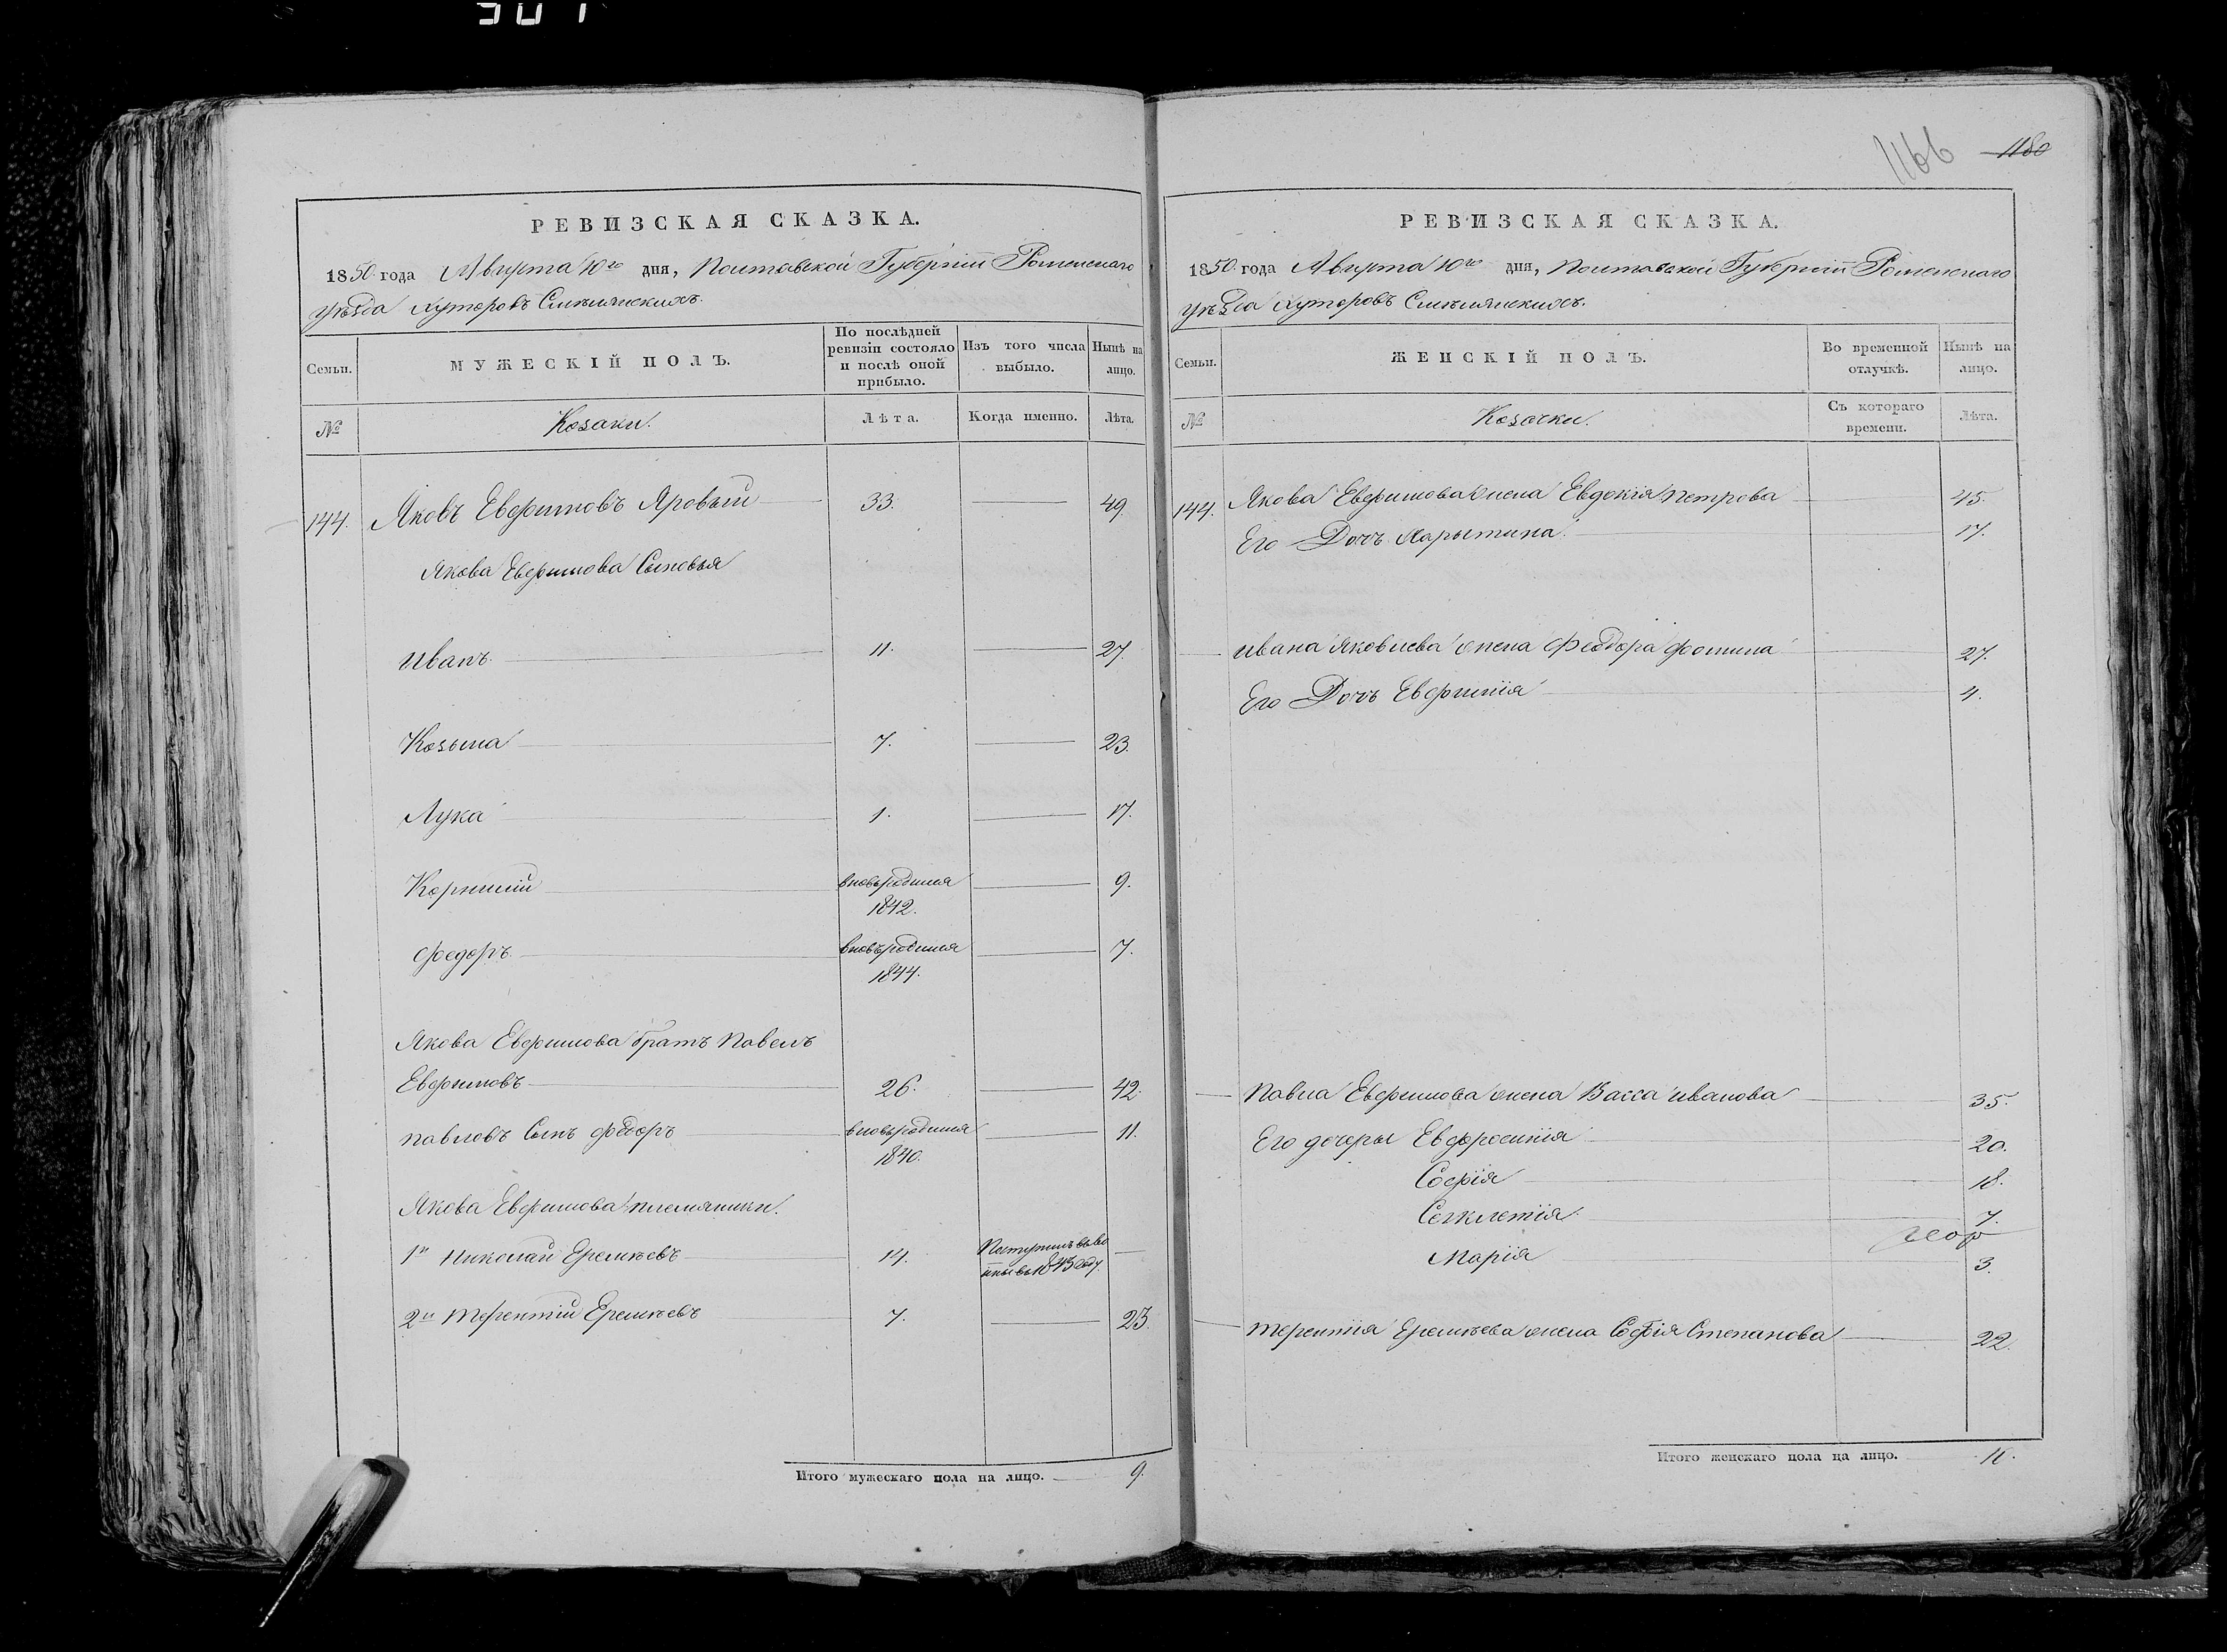 307
РЕВИЗСКАЯ СКАЗКА.
1850 года Августа 10го дня, Полтавской Губерніи Роменскаго
уѣзда хуторовъ Смѣлянскихъ.
Семьи.
МУЖЕСКІЙ ПОЛЪ.
По послѣдней
ревизіи состояло
и послѣ оной
прибыло.
Изъ того числа
выбыло.
Нынѣ на
лицо.
№
Козаки.
Лѣта.
Когда именно.
Лѣта.
144. Яковъ Евфимовъ Яровый 33. 49.
Якова Евфимова Сыновья
Иванъ. 11. 27.
Козьма 7. 23.
Лука 1. 17.
Корнилій вновьродился 9.
1842.
Федоръ. вновьродился 7.
1844.
Якова Евфимова братъ Павелъ
Евфимовъ 26. 42.
Павловъ Сынъ Федоръ вновьродился 11.
1840.
Якова Евфимова племянники.
1й Николай Еремѣевъ 14.
въ 1843 году.
2й Терентій Еремѣевъ 7. 23.
Итого мужескаго пола на лицо. 9.
1166 1180
РЕВИЗСКАЯ СКАЗКА.
1850 года Августа 10го дня, Полтавской Губерніи Роменскаго
уѣзда хуторовъ Смѣлянскихъ.
Семьи.
ЖЕНСКІЙ ПОЛЪ.
Во временной
отлучкѣ.
Нынѣ на
лицо.
№
Козачки.
Съ котораго
времени.
Лѣта.
144. Якова Евфимова жена Евдокія Петрова 45.
Его Дочь Харытина. 17.
Ивана Яковлева жена Феодора Фомина 27.
Его Дочь Евфимія 4.
Павла Евфимова жена Васса Иванова 35.
Его дочеры Евфросинія 20.
Софія 18.
Секлетія. 7.
Марія 3.
Терентія Еремѣева жена Софія Степанова 22.
Итого женскаго пола на лицо. 10.